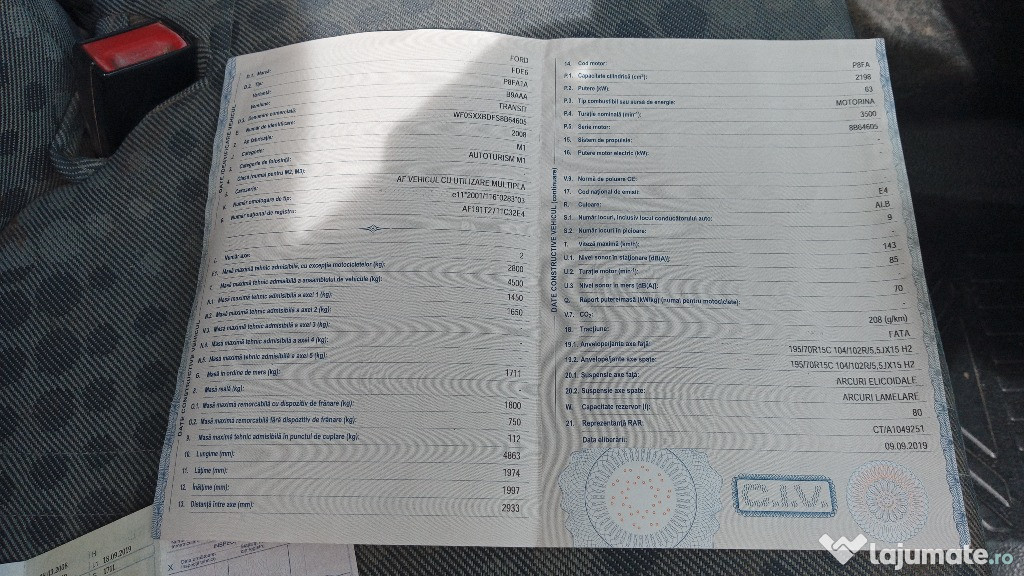 D.1. Marca: FORD
D.2. Tip: FDE6
Varianta: P8FA1A
Versiune: B9AAA
D.3. Denumire comercială: TRANSIT
E. Număr de identificare: WF0SXXBDFS8B64605
An fabricaţie: 2008
Categorie: M1
Categorie de folosinţă: AUTOTURISM M1
Clasă (numai pentru M2, M3): -
Caroserie: AF VEHICUL CU UTILIZARE MULTIPLA
K. Număr omologare de tip: e11*2001/116*0283*03
Număr naţional de registru: AF191T2711C32E4
DATE IDENTIFICARE VEHICUL
L. Număr axe: 2
F.1. Masă maximă tehnic admisibilă, cu excepţia motocicletelor (kg): 2800
Masă maximă tehnic admisibilă a ansamblului de vehicule (kg): 4500
N.1 Masă maximă tehnic admisibilă a axei 1 (kg): 1450
N.2 Masă maximă tehnic admisibilă a axei 2 (kg): 1650
N.3 Masă maximă tehnic admisibilă a axei 3 (kg): -
N.4 Masă maximă tehnic admisibilă a axei 4 (kg): -
N.5 Masă maximă tehnic admisibilă a axei 5 (kg): -
G. Masă în ordine de mers (kg): 1711
Masă reală (kg): -
O.1. Masă maximă remorcabilă cu dispozitiv de frânare (kg): 1800
O.2. Masă maximă remorcabilă fără dispozitiv de frânare (kg): 750
9. Masă maximă tehnic admisibilă în punctul de cuplare (kg): 112
10. Lungime (mm): 4863
11. Lăţime (mm): 1974
12. Înălţime (mm): 1997
13. Distanţă între axe (mm): 2933
DATE CONSTRUCTIVE VEHICUL
14. Cod motor: P8FA
P.1. Capacitate cilindrică (cm³): 2198
P.2. Putere (kW): 63
P.3. Tip combustibil sau sursă de energie: MOTORINA
P.4. Turaţie nominală (min⁻¹): 3500
P.5. Serie motor: 8B64605
15. Sistem de propulsie: -
16. Putere motor electric (kW): -
V.9. Normă de poluare CE:
17. Cod naţional de emisii: E4
R. Culoare: ALB
S.1. Număr locuri, inclusiv locul conducătorului auto: 9
S.2. Număr locuri în picioare: -
T. Viteză maximă (km/h): 143
U.1. Nivel sonor în staţionare [dB(A)]: 85
U.2. Turaţie motor (min⁻¹):
U.3. Nivel sonor în mers [dB(A)]: 70
Q. Raport putere/masă (kW/kg) (numai pentru motociclete): -
V.7. CO₂: 208 (g/km)
18. Tracţiune: FATA
19.1. Anvelope/jante axe faţă: 195/70R15C 104/102R/5,5JX15 H2
19.2. Anvelope/jante axe spate: 195/70R15C 104/102R/5,5JX15 H2
20.1. Suspensie axe faţă: ARCURI ELICOIDALE
20.2. Suspensie axe spate: ARCURI LAMELARE
W. Capacitate rezervor (l): 80
21. Reprezentanţă RAR: CT/A1049251
Data eliberării: 09.09.2019
DATE CONSTRUCTIVE VEHICUL (continuare)
C.I.V.
18.09.2019
lajumate.ro